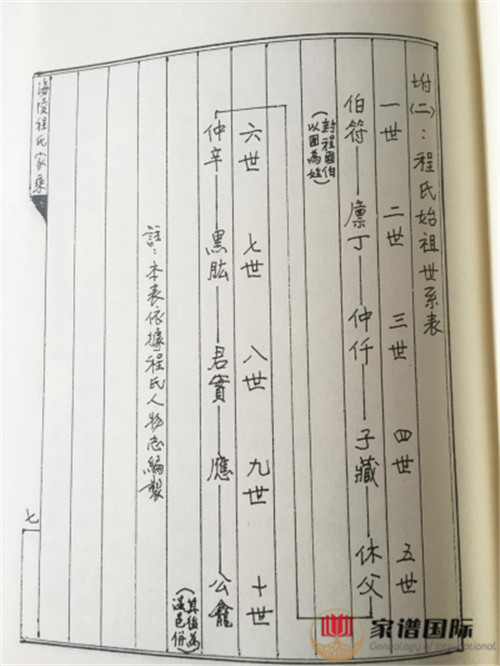 坿〈二〉:程氏始祖世系表
一世 二世 三世 四世 五世
伯符 廩丁 仲仟 子藏 休父
(封程國伯
以國為姓)
六世 七世 八世 九世 十世
仲辛 黑肱 君寶 應 公龕
(其後為
溫邑侯)
註:本表依據程氏人物志編製
海陵程氏家乘
七
家谱国际
Genealogy of International